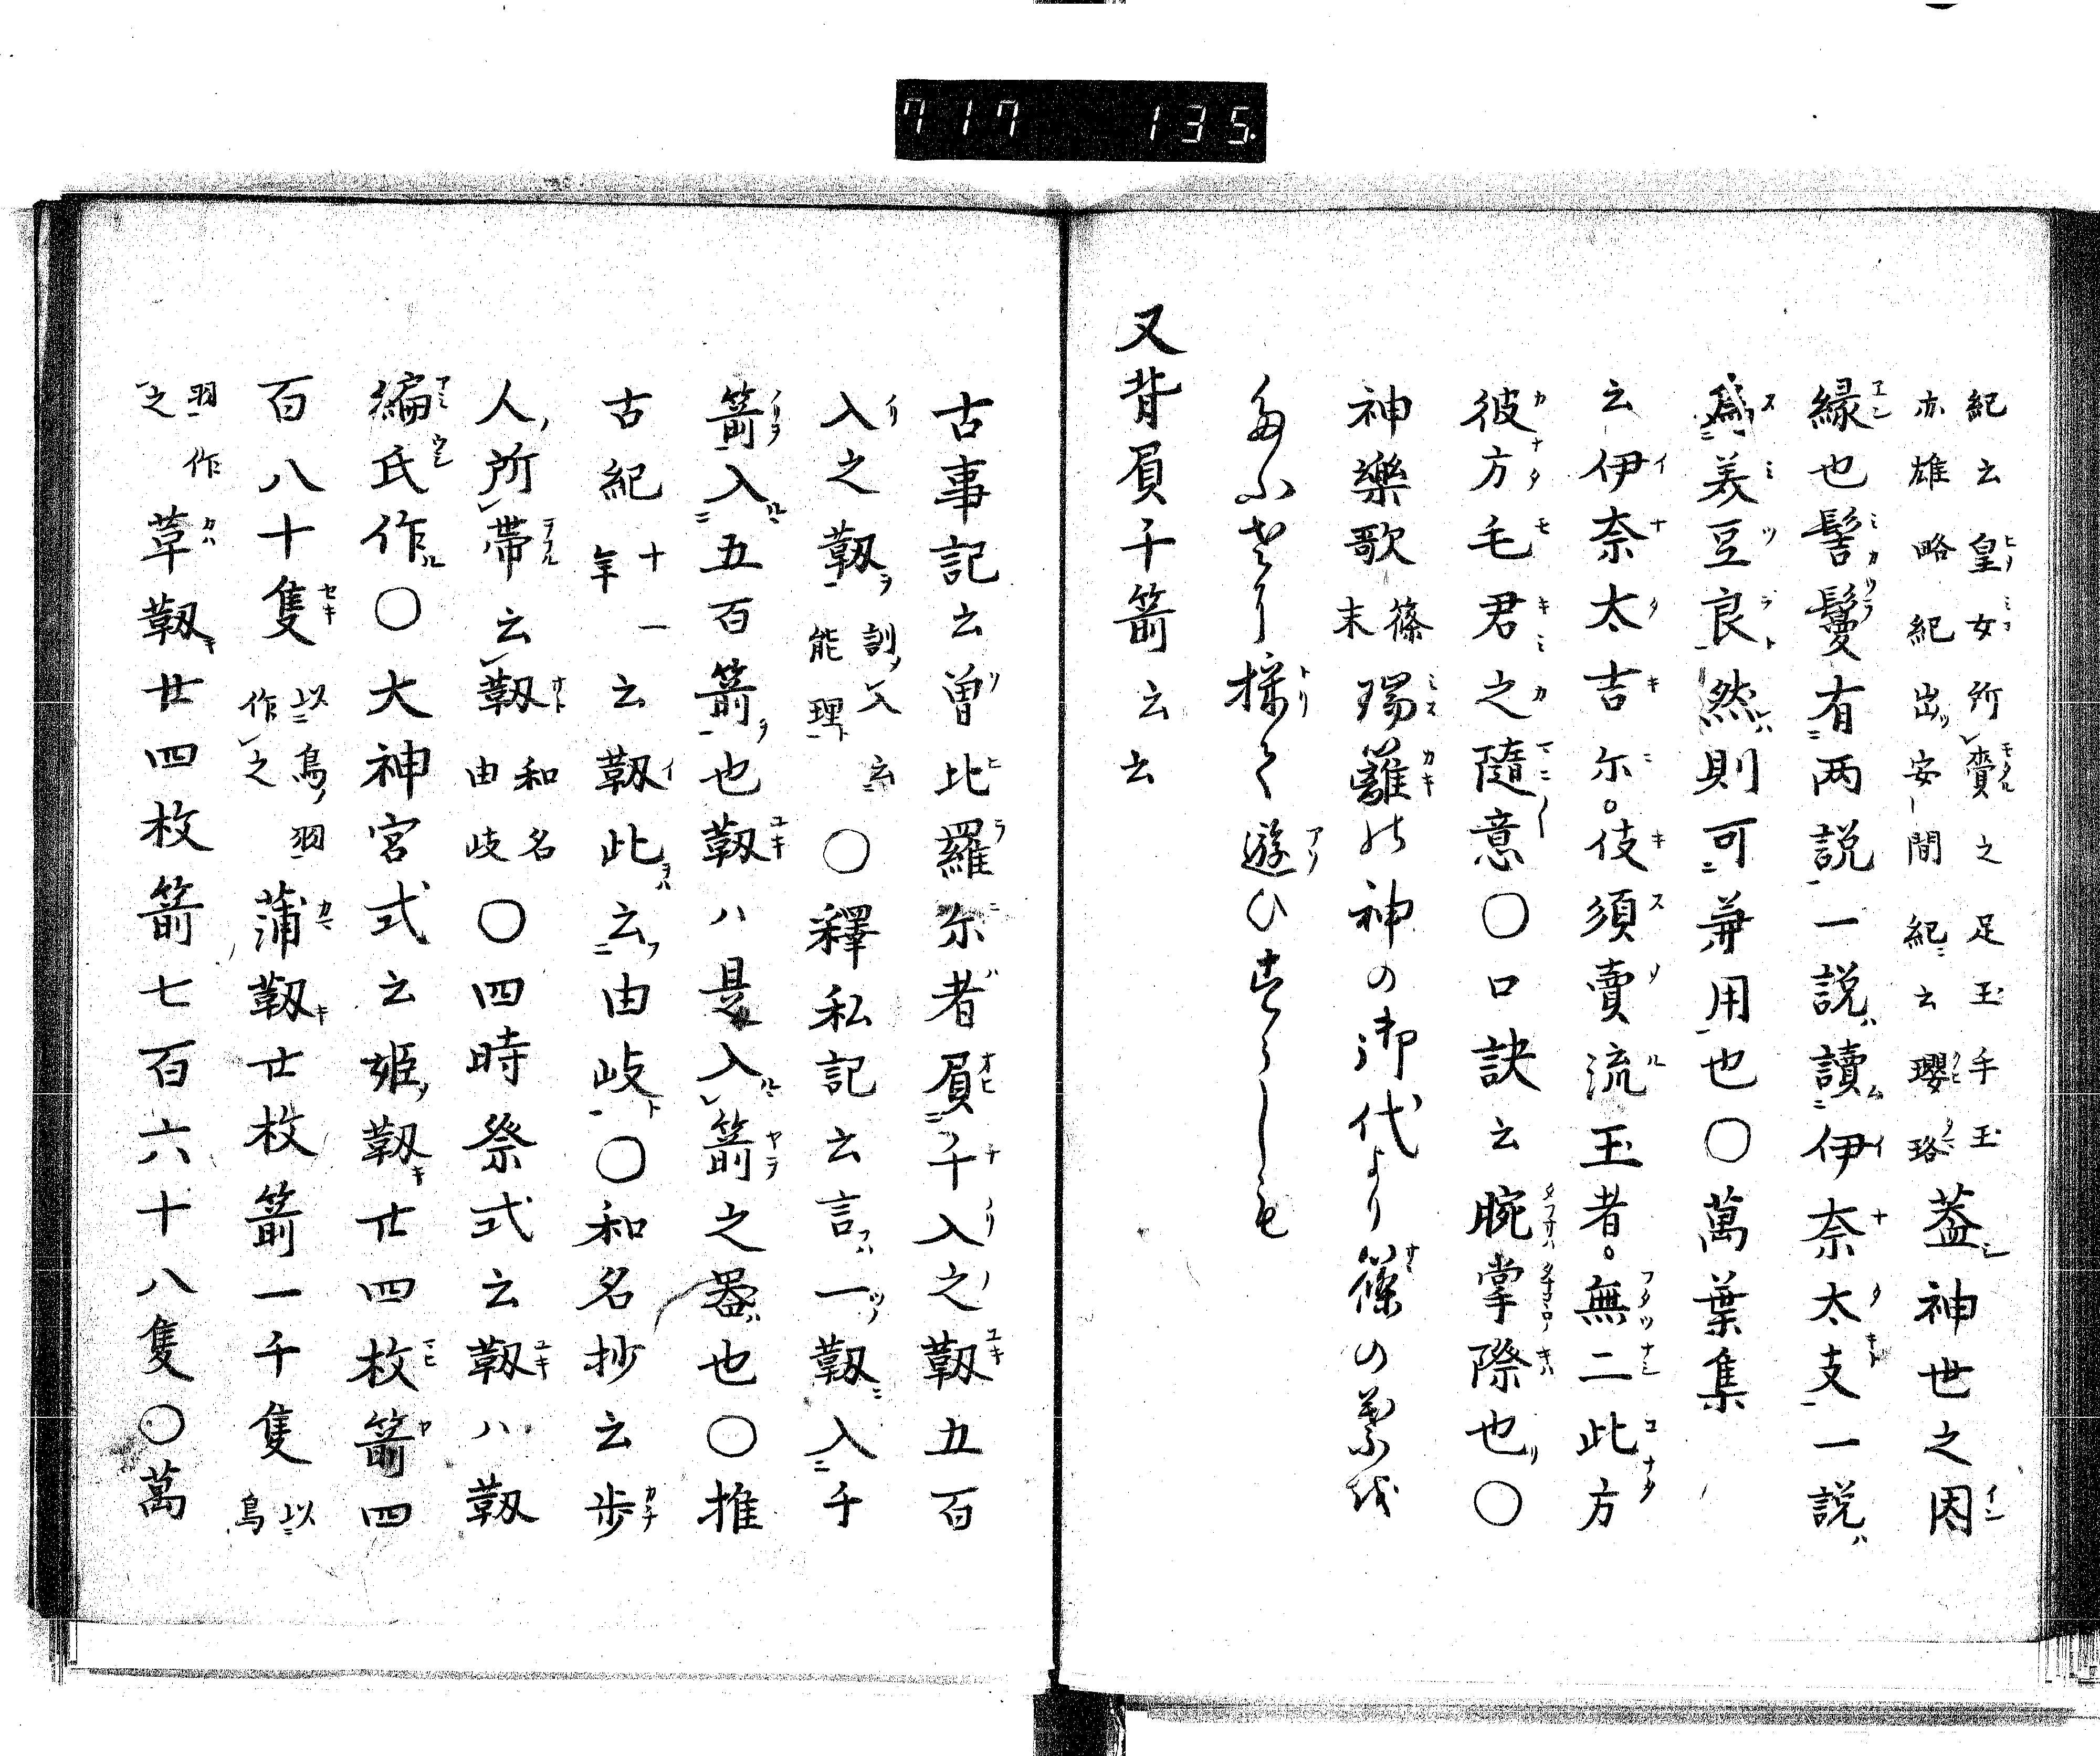 717 135.
紀云皇女所賷之足玉手玉
亦雄略紀出安閒紀云瓔珞
蓋神世之因
縁也髻鬘有两説一説讀伊奈太支一説
為美豆良然則可兼用也〇萬葉集
云伊奈太吉尓。伎須賣流玉者。無二此方
彼方毛君之隨意〇口訣云腕掌際也〇
神樂歌篠末瑞籬の神の御代より篠の葉を
たふさに採て遊ひけらしも
又背屓千箭云云
古事記云曽比羅尓者屓千入之靫五百
入之靫訓入云能理〇釋私記云言一靫入千
箭入五百箭也靫ハ是入箭之器也〇推
古紀十一年云靫此云由岐〇和名抄云歩
人所帯云靫和名由岐〇四時祭式云靫ハ靫
編氏作〇大神宮式云姫靫廿四枚箭四
百八十隻以烏羽作之蒲靫廿枚箭一千隻以烏
羽作之革靫廿四枚箭七百六十八隻〇萬